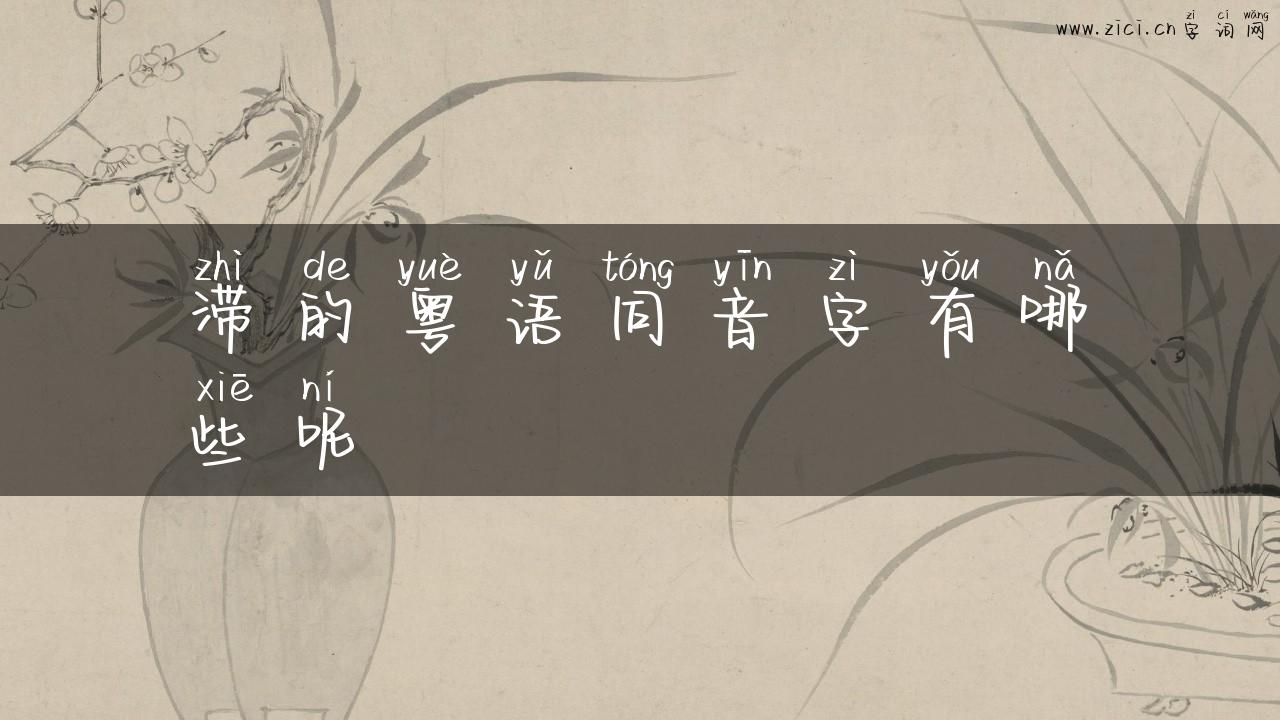 zì cí wǎng
www.zici.cn 字 词 网
zhì de yuè yǔ tóng yīn zì yǒu nǎ
滞 的 粤 语 同 音 字 有 哪
xiē ní
些 呢